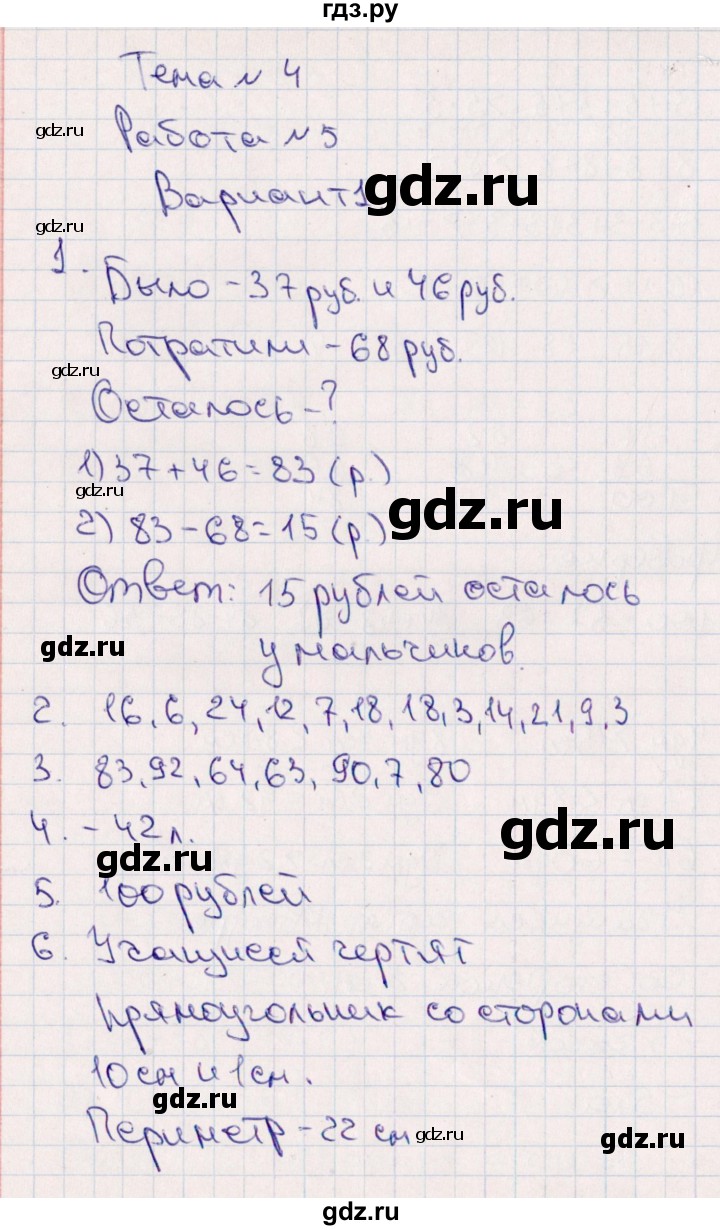 гдз.ру
Тема № 4
gdz.ru
Работа № 5
gdz.ru
Вариант 1
gdz.ru
1. Было - 37 руб. и 46 руб.
Потратили - 68 руб.
gdz.ru
Осталось - ?
1) 37 + 46 = 83 (р.)
gdz.ru
gdz.ru
2) 83 - 68 = 15 (р.)
Ответ: 15 рублей осталось
gdz.ru
у мальчиков.
2. 16, 6, 24, 12, 7, 18, 18, 3, 14, 21, 9, 3
3. 83, 92, 64, 63, 90, 7, 80
4. - 42 л.
gdz.ru
gdz.ru
5. 100 рублей
6. Учащиеся чертят
прямоугольник со сторонами
10 см и 1 см.
gdz.ru
Периметр - 22 см
gdz.ru
gdz.ru
gdz.ru